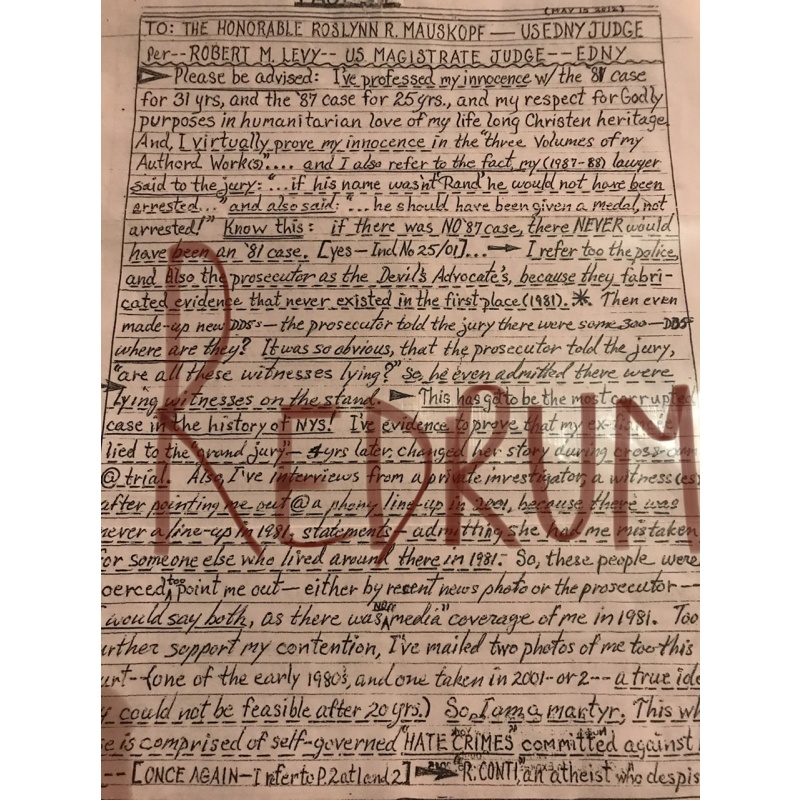 (MAY 15 2012)
TO: THE HONORABLE ROSLYNN R. MAUSKOPF — USEDNY JUDGE
Per-- ROBERT M. LEVY -- US MAGISTRATE JUDGE -- EDNY
Please be advised: I've professed my innocence w/ the '81 case
for 31 yrs, and the '87 case for 25 yrs., and my respect for Godly
purposes in humanitarian love of my life long Christen heritage.
And, I virtually prove my innocence in the "three Volumes of my
Authord Work(s)".... and I also refer to the fact, my (1987-88) lawyer
said to the jury: "...if his name wasn't 'Rand' he would not have been
arrested..." and also said: "...he should have been given a medal, not
arrested!" Know this: if there was NO '87 case, there NEVER would
have been an '81 case. [yes-Ind No 25/01]... → I refer too the police,
and Also the prosecutor as the Devil's Advocate's, because they fabri-
cated evidence that never existed in the first place (1981). * Then even
made-up new DD5's — the prosecutor told the jury there were some 300 — DD5s
where are they? It was so obvious, that the prosecutor told the jury,
"are all these witnesses lying?" So, he even admitted there were
lying witnesses on the stand. ► This has got to be the most corrupted
case in the history of NYS! I've evidence to prove that my
lied to the "grand jury" — 4 yrs later, changed her story during cross-exam
@ trial. Also, I've interviews from a private investigator, a witness(es)
after pointing me out @ a phony line-up in 2001, because there was
never a line-up in 1981, statements — admitting she had me mistaken
for someone else who lived around there in 1981. So, these people were
oerced, too point me out — either by recent news photo or the prosecutor --
I would say both, as there was NO "media" coverage of me in 1981. Too
urther support my contention, I've mailed two photos of me too this
urt -- (one of the early 1980's, and one taken in 2001-or 2 --- a true ide
y could not be feasible after 20 yrs.) So, I am a martyr, This wh
se is comprised of self-governed "HATE CRIMES" committed against
-- [ONCE AGAIN — I refer to P.2 at 1 and 2] "R. CONTI, an atheist who despis
REDRUM